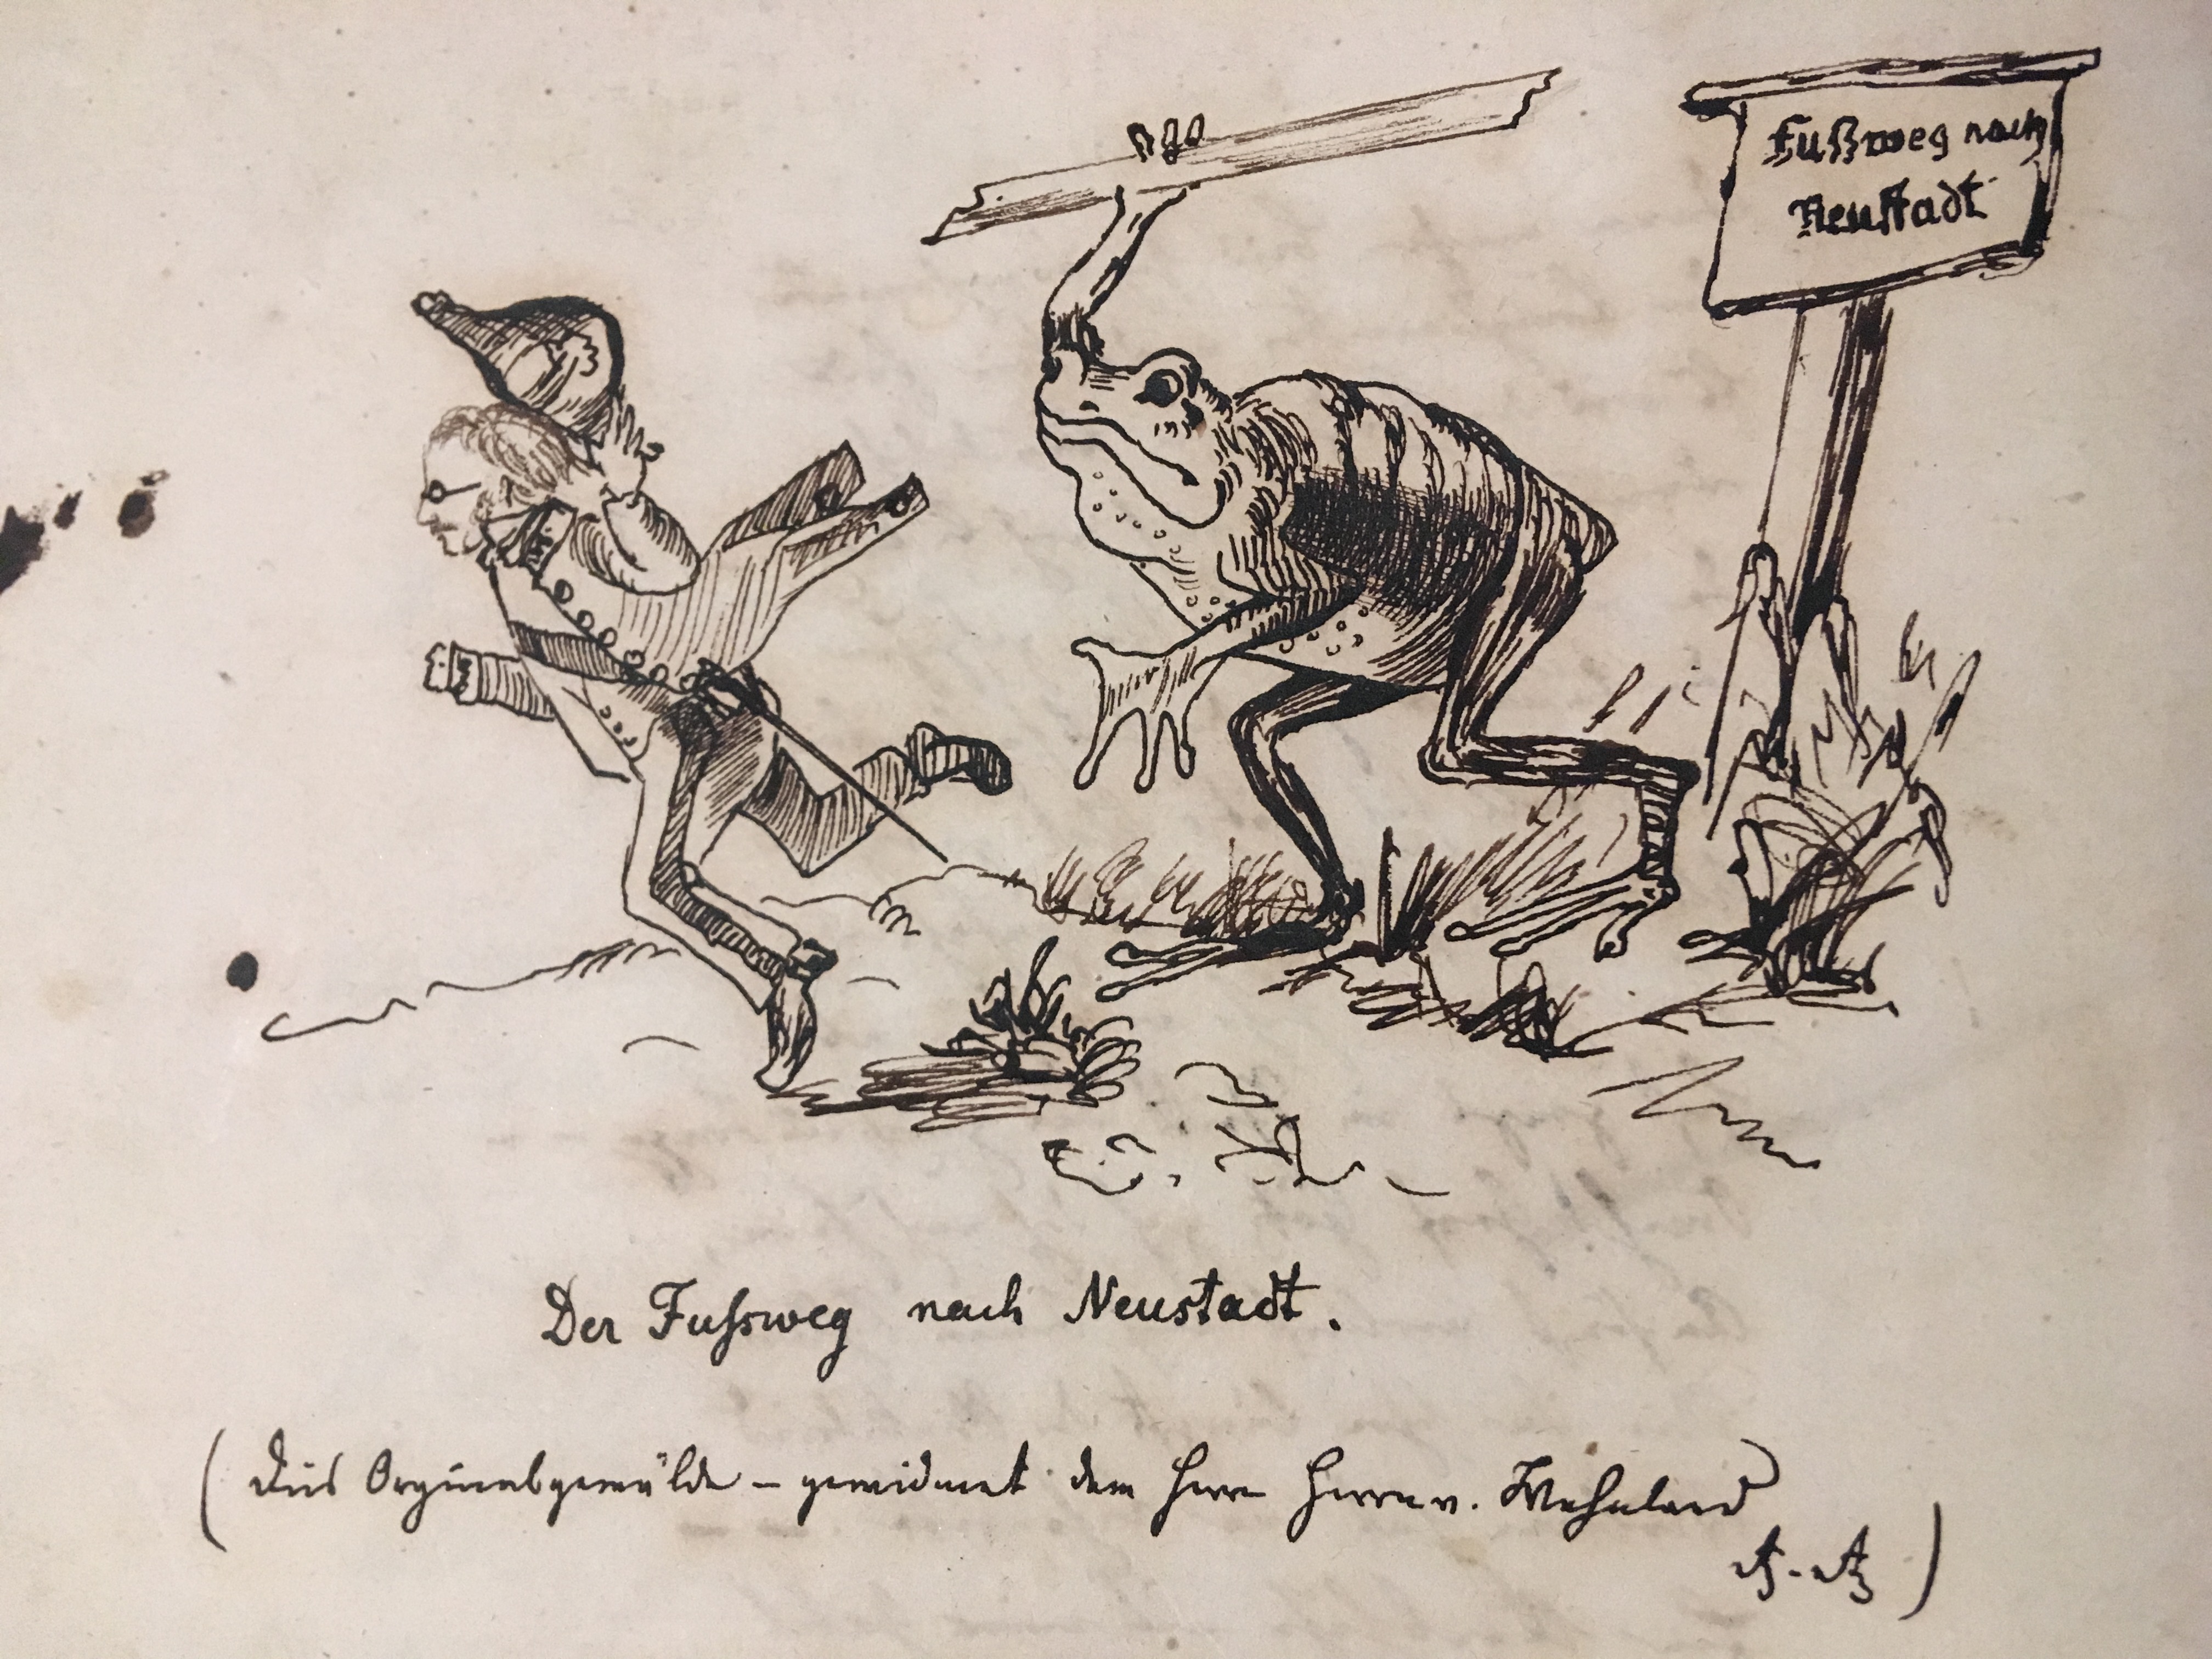 Fußweg nach
Neustadt
Der Fussweg nach Neustadt.
(Dies Orginalgemälde – gewidmet dem Herrn Herrn v.